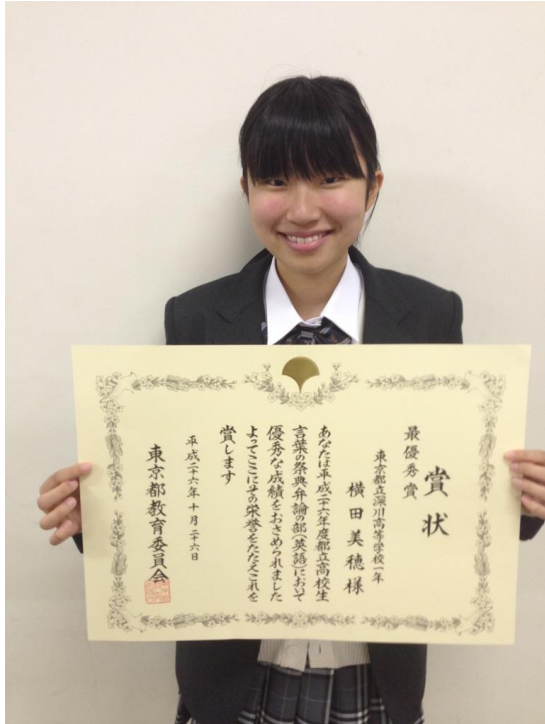 賞状
最優秀賞
東京都立深川高等学校一年
横田美穂様
あなたは平成二十六年度都立高校生
言葉の祭典弁論の部(英語)において
優秀な成績をおさめられました
よってここにその栄誉をたたえこれを
賞します
平成二十六年十月二十六日
東京都教育委員会